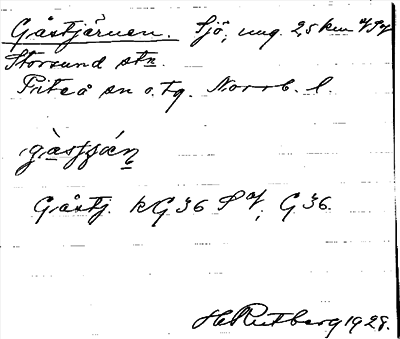 Gåstjärnen. Sjö, ung. 25 km
Storsund stn.
Piteå sn o. tg. Norrb. l.
Gåstj. kG36 S af, G36.
H. Rutberg 1928.